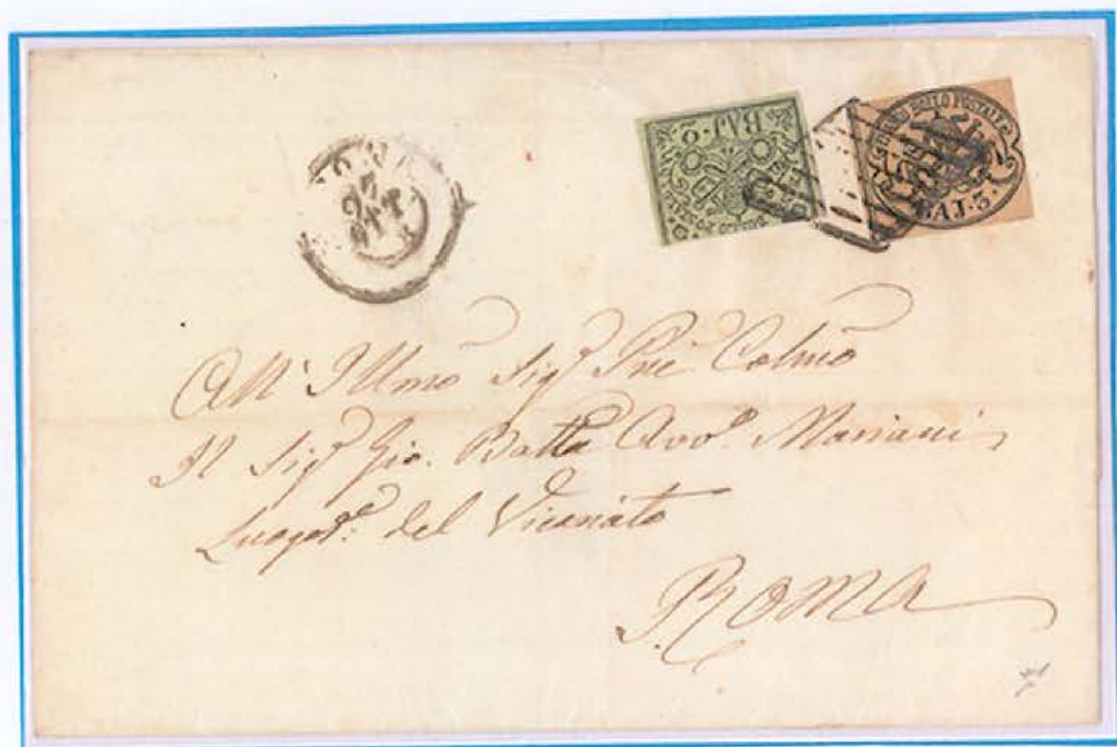 BAJ·2
FRANCO BOLLO POSTALE
BAJ·3·
27
All' Illmo Sigr Pne Colmo
Il Sigr Gio. Batta Avvo Mariani
Luogote del Vicariato
ROMA